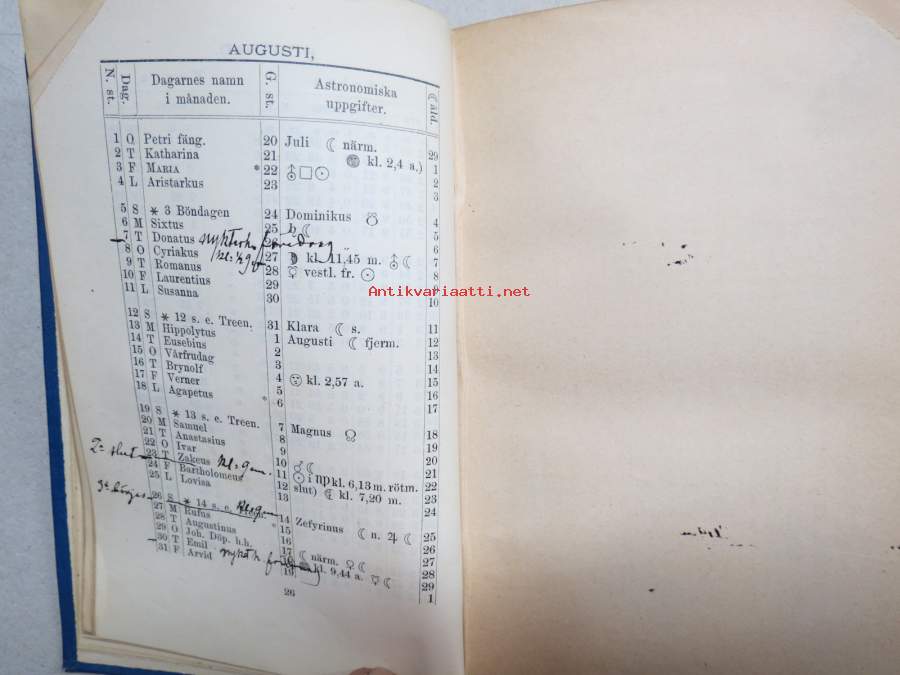 AUGUSTI,
N. st. Dag. Dagarnes namn i månaden. G. st. Astronomiska uppgifter. ☾ åld.
1 O Petri fäng. 20 Juli ☾ närm. 29
2 T Katharina 21 kl. 2,4 a.) 1
3 F MARIA * 22 ⛢□☉ 2
4 L Aristarkus 23 3
5 S * 3 Böndagen 24 Dominikus ☋ 4
6 M Sixtus 25 ♄☾ 5
7 T Donatus 26 6
8 O Cyriakus kl: ½ 9 27 kl. 11,45 m. ⛢☾ 7
9 T Romanus 28 ☿ vestl. fr. ☉ 8
10 F Laurentius 29 9
11 L Susanna 30 10
12 S * 12 s. e. Treen. 31 Klara ☾ s. 11
13 M Hippolytus 1 Augusti ☾ fjerm. 12
14 T Eusebius 2 13
15 O Vårfrudag 3 14
16 T Brynolf 4 kl. 2,57 a. 15
17 F Verner 5 16
18 L Agapetus * 6 17
19 S * 13 s. e. Treen. 7 Magnus ☊ 18
20 M Samuel 8 19
21 T Anastasius 9 20
22 O Ivar 10 ♂☾ 21
23 T Zakeus 11 ☉ i ♍ kl. 6,13 m. rötm. 22
24 F Bartholomeus 12 slut) ☾ kl. 7,20 m. 23
25 L Lovisa 13 24
26 S * 14 s. e. 14 Zefyrinus ☾ n. ♃☾ 25
27 M Rufus * 15 26
28 T Augustinus 16 27
29 O Joh. Döp. h.h. 17 ☾ närm. ♀☾ 28
30 T Emil 18 kl. 9,44 a. ☿☾ 29
31 F Arvid 19 1
26
Antikvariaatti.net